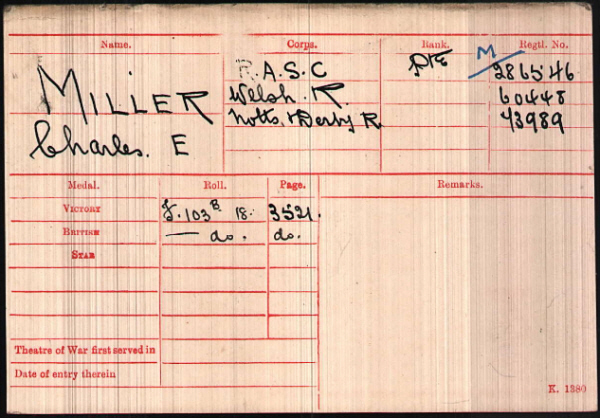 Name. Corps. Rank. Regtl. No.
MILLER R.A.S.C Pte M/286546
Charles. E Welsh. R. 60448
Notts. & Derby R 43989
Medal. Roll. Page. Remarks.
VICTORY J. 103 B 18. 3521.
BRITISH — do. do.
STAR
Theatre of War first served in
Date of entry therein
K. 1380